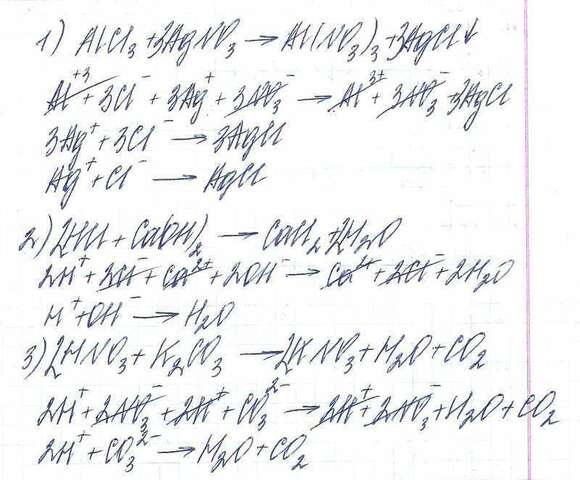 1) AlCl₃ + 3AgNO₃ → Al(NO₃)₃ + 3AgCl↓
Al⁺³ + 3Cl⁻ + 3Ag⁺ + 3NO₃⁻ → Al³⁺ + 3NO₃⁻ + 3AgCl
3Ag⁺ + 3Cl⁻ → 3AgCl
Ag⁺ + Cl⁻ → AgCl
2) 2HCl + Ca(OH)₂ → CaCl₂ + 2H₂O
2H⁺ + 2Cl⁻ + Ca²⁺ + 2OH⁻ → Ca²⁺ + 2Cl⁻ + 2H₂O
H⁺ + OH⁻ → H₂O
3) 2HNO₃ + K₂CO₃ → 2KNO₃ + H₂O + CO₂
2H⁺ + 2NO₃⁻ + 2K⁺ + CO₃²⁻ → 2K⁺ + 2NO₃⁻ + H₂O + CO₂
2H⁺ + CO₃²⁻ → H₂O + CO₂